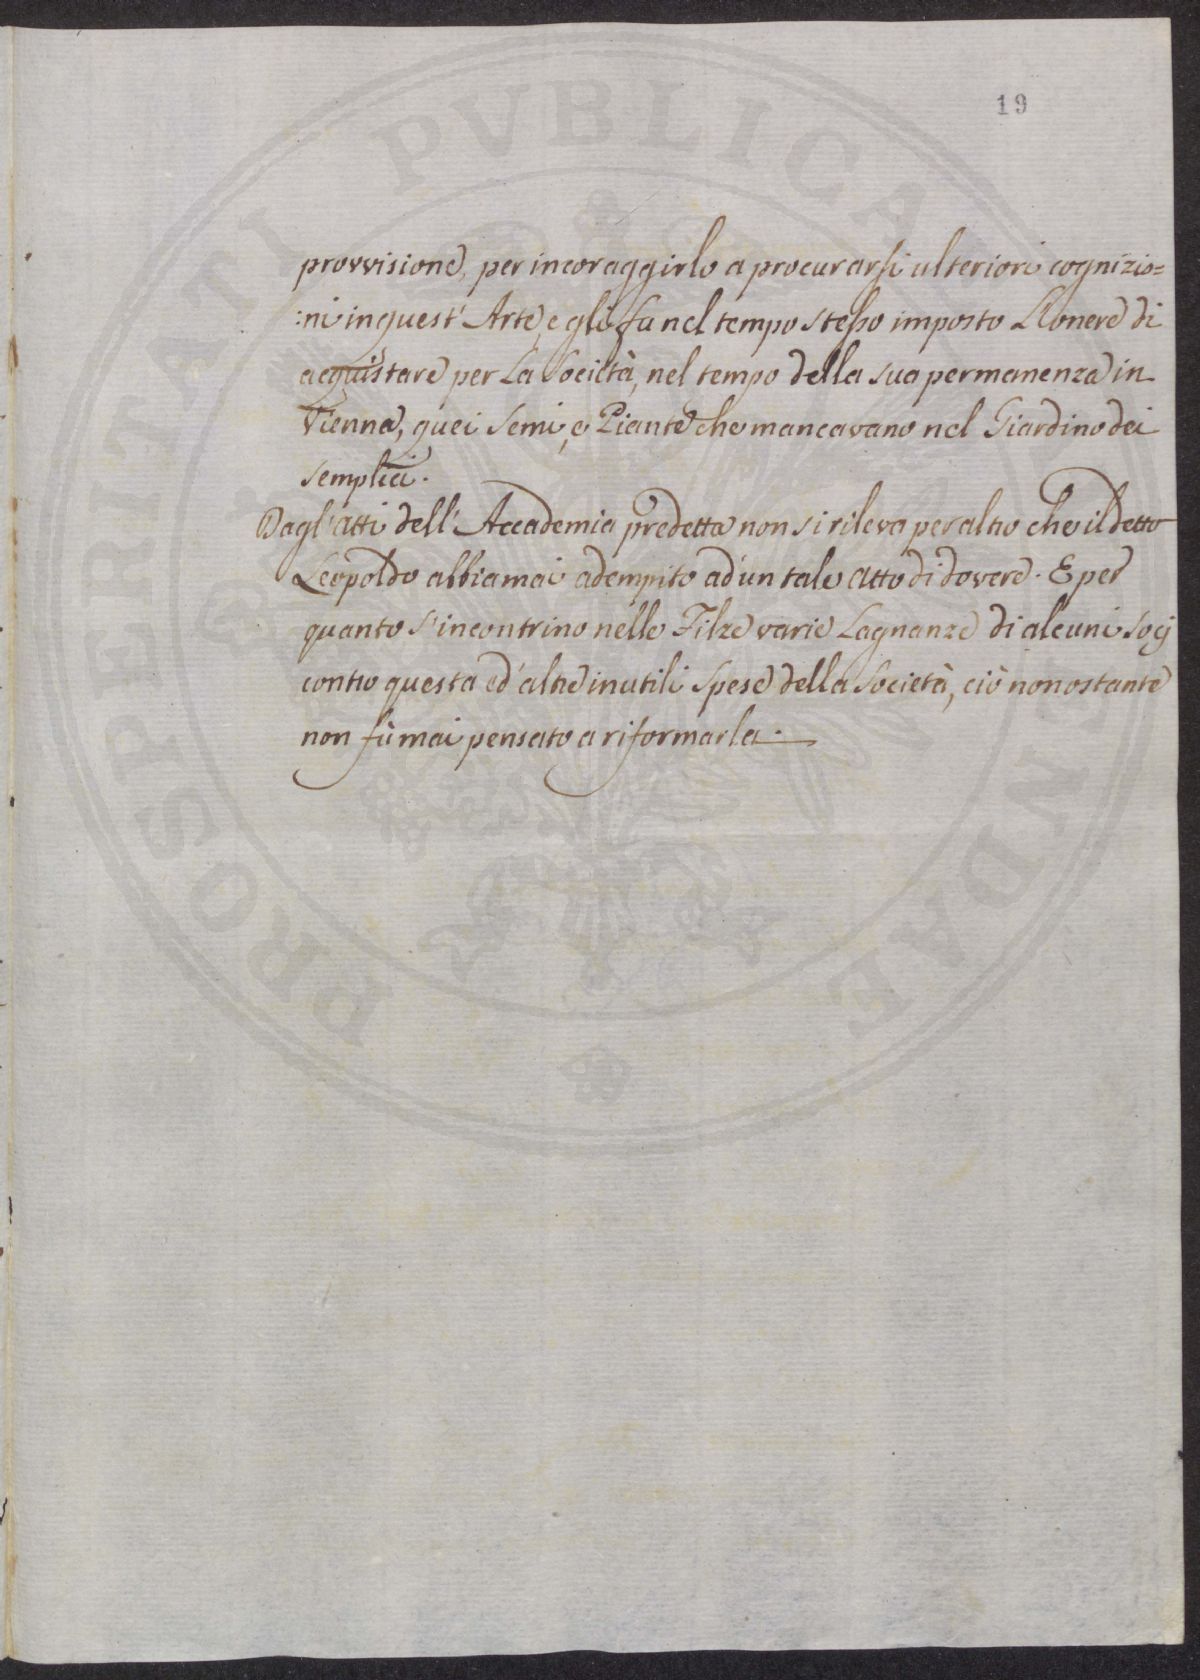 19
provvisione, per incoraggirlo a procurarsi ulteriori cognizio=
:ni in quest' Arte, e gli fù nel tempo stesso imposto l'onere di
acquistare per la Società, nel tempo della sua permanenza in
Vienna, quei Semi, e Piante che mancavano nel Giardino dei
Semplici.
Dagl'atti dell' Accademia predetta non si rileva per altro che il detto
Leopoldo abbia mai adempito ad un tale atto di dovere. E per
quanto s'incontrino nelle Filze varie Lagnanze di alcuni Socj
contro questa ed' altre inutili Spese della Società, ciò nonostante
non fù mai pensato a riformarla.
PROSPERITATI PVBLICAE AVGENDAE